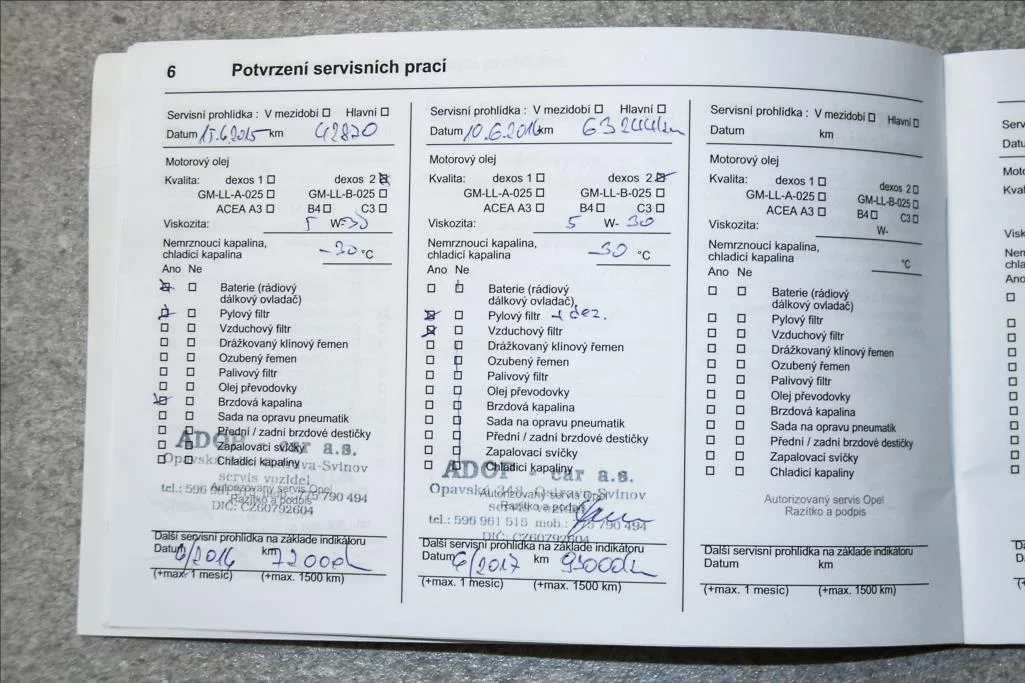 6 Potvrzení servisních prací
Servisní prohlídka : V mezidobí ☐ Hlavní ☐
Datum 15.6.2015 km 42870
Motorový olej
Kvalita: dexos 1 ☐ dexos 2 ☒
GM-LL-A-025 ☐ GM-LL-B-025 ☐
ACEA A3 ☐ B4 ☐ C3 ☐
Viskozita: 5 W- 30
Nemrznoucí kapalina,
chladicí kapalina -30 °C
Ano Ne
☒ ☐ Baterie (rádiový
dálkový ovladač)
☒ ☐ Pylový filtr
☐ ☐ Vzduchový filtr
☐ ☐ Drážkovaný klínový řemen
☐ ☐ Ozubený řemen
☐ ☐ Palivový filtr
☐ ☐ Olej převodovky
☒ ☐ Brzdová kapalina
☐ ☐ Sada na opravu pneumatik
☐ ☐ Přední / zadní brzdové destičky
☐ ☐ Zapalovací svíčky
☐ ☐ Chladicí kapaliny
car a.s.
servis vozidel
Autorizovaný servis Opel
tel.: 596 790 494
Razítko a podpis
DIČ: CZ60792604
Další servisní prohlídka na základe indikátoru
Datum 6/2016 km 72000
(+max. 1 mesíc) (+max. 1500 km)
Servisní prohlídka : V mezidobí ☐ Hlavní ☐
Datum 10.6.2016 km 63244km
Motorový olej
Kvalita: dexos 1 ☐ dexos 2 ☒
GM-LL-A-025 ☐ GM-LL-B-025 ☐
ACEA A3 ☐ B4 ☐ C3 ☐
Viskozita: 5 W- 30
Nemrznoucí kapalina,
chladicí kapalina -30 °C
Ano Ne
☐ ☐ Baterie (rádiový
dálkový ovladač)
☒ ☐ Pylový filtr + dez.
☒ ☐ Vzduchový filtr
☐ ☐ Drážkovaný klínový řemen
☐ ☐ Ozubený řemen
☐ ☐ Palivový filtr
☐ ☐ Olej převodovky
☐ ☐ Brzdová kapalina
☐ ☐ Sada na opravu pneumatik
☐ ☐ Přední / zadní brzdové destičky
☐ ☐ Zapalovací svíčky
☐ ☐ Chladicí kapaliny
car a.s.
Opavská Ostrava-Svinov
Autorizovaný servis Opel
Razítko a podpis
tel.: 596 961 515 mob.: 775 790 494
DIČ: CZ60792604
Další servisní prohlídka na základe indikátoru
Datum 6/2017 km 93000km
(+max. 1 mesíc) (+max. 1500 km)
Servisní prohlídka : V mezidobí ☐ Hlavní ☐
Datum km
Motorový olej
Kvalita: dexos 1 ☐ dexos 2 ☐
GM-LL-A-025 ☐ GM-LL-B-025 ☐
ACEA A3 ☐ B4 ☐ C3 ☐
Viskozita: W-
Nemrznoucí kapalina,
chladicí kapalina °C
Ano Ne
☐ ☐ Baterie (rádiový
dálkový ovladač)
☐ ☐ Pylový filtr
☐ ☐ Vzduchový filtr
☐ ☐ Drážkovaný klínový řemen
☐ ☐ Ozubený řemen
☐ ☐ Palivový filtr
☐ ☐ Olej převodovky
☐ ☐ Brzdová kapalina
☐ ☐ Sada na opravu pneumatik
☐ ☐ Přední / zadní brzdové destičky
☐ ☐ Zapalovací svíčky
☐ ☐ Chladicí kapaliny
Autorizovaný servis Opel
Razítko a podpis
Další servisní prohlídka na základe indikátoru
Datum km
(+max. 1 mesíc) (+max. 1500 km)